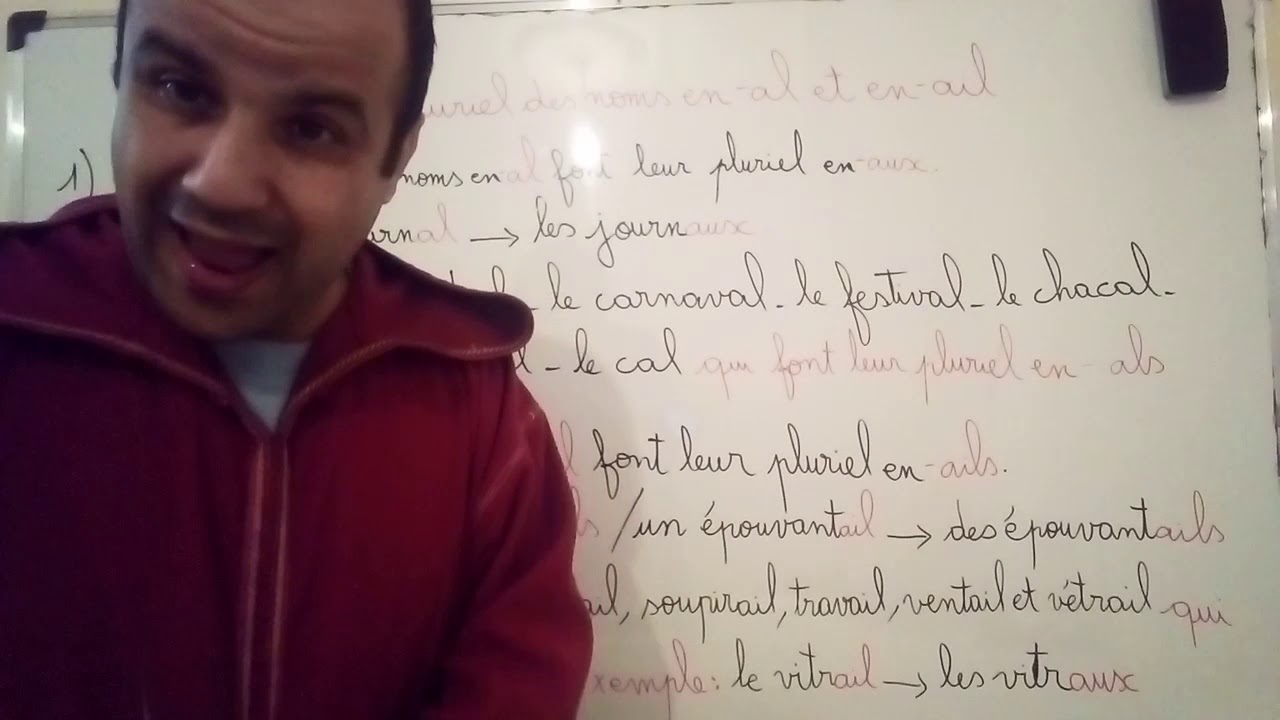 pluriel des noms en -al et en -ail
1) noms en al font leur pluriel en -aux.
journal → les journaux
- le carnaval - le festival - le chacal -
- le cal qui font leur pluriel en - als
font leur pluriel en -ails.
/ un épouvantail → des épouvantails
soupirail, travail, ventail et vétrail qui
exemple: le vitrail → les vitraux